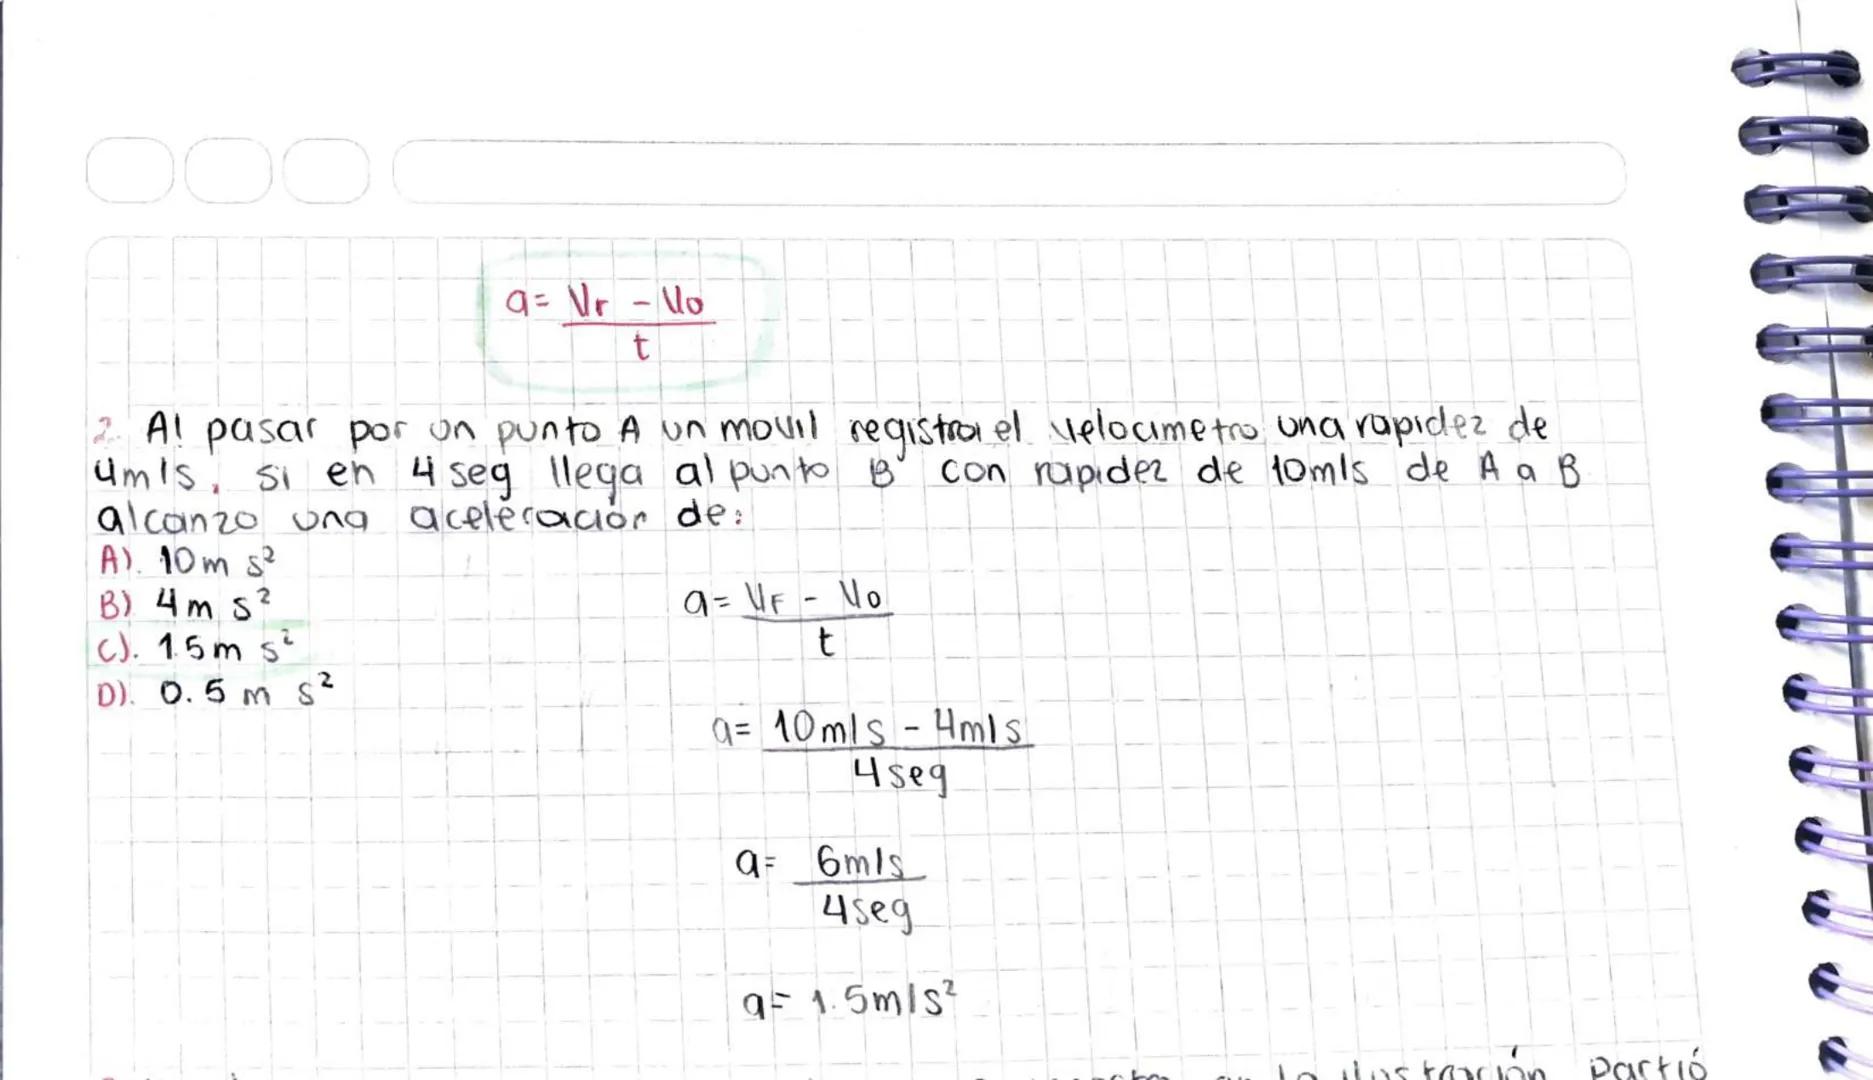 a = Vf - Vo
t
2. Al pasar por un punto A un movil registra el velocimetro una rapidez de
4m/s, si en 4 seg llega al punto B con rapidez de 10m/s de A a B
alcanzo una aceleración de:
A). 10 m s²
B) 4 m s²
C). 1.5 m s²
D). 0.5 m s²
a = VF - Vo
t
a = 10m/s - 4m/s
4 seg
a = 6m/s
4seg
a = 1.5m/s²
la ilustración Partió